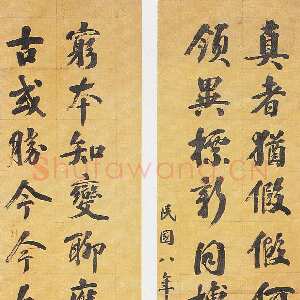 真者猶假假何
領異標新
民國八年
窮本知變聊
古或勝今今
Shufawang.CN